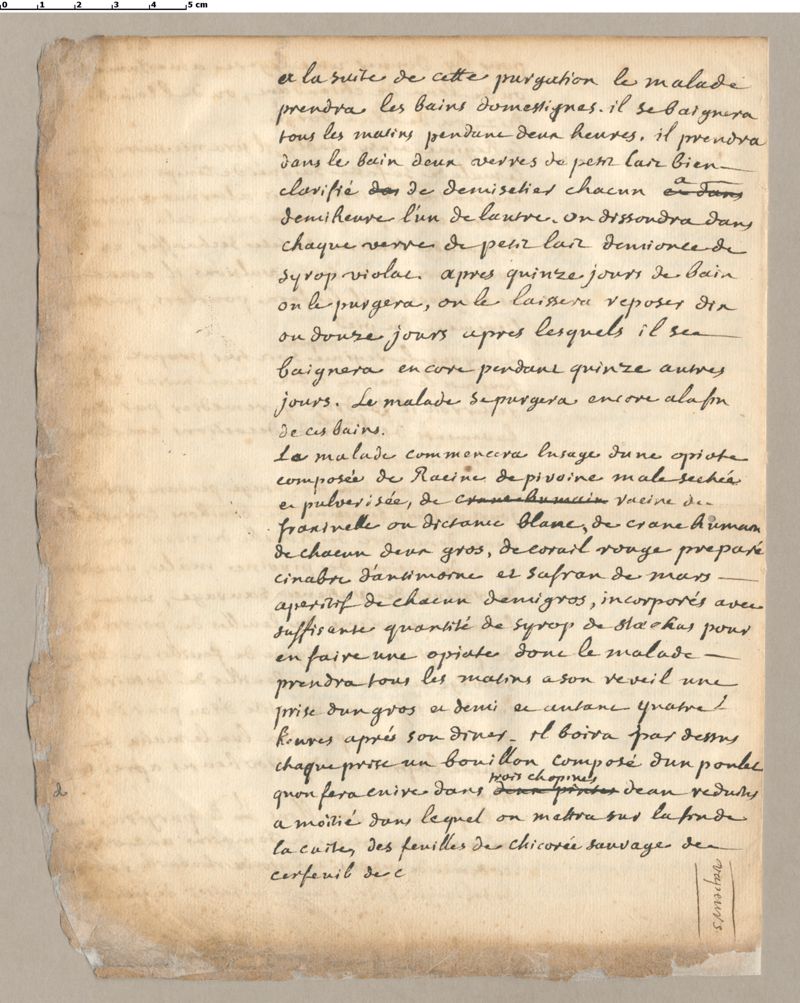 et la suite de cette purgation le malade
prendra les bains domestiques. il se baignera
tous les matins pendant deux heures. il prendra
dans le bain deux verres de petit lait bien
clarifié des de demisetier chacun et dans a
demiheure l'un de lautre. on dissoudra dans
chaque verre de petit lait demionce de
syrop violat. apres quinze jours de bain
on le purgera, on le laissera reposer dix
ou douze jours apres lesquels il se
baignera encore pendant quinze autres
jours. Le malade se purgera encore alafin
de ces bains.
Le malade commencera lusage dune opiate
composée de Racine de pivoine male sechée
et pulverisée, de crane humain racine de
fraxinelle ou dictame blanc, de crane humain
de chacun deux gros, de corail rouge preparé
cinabre d'antimoine et safran de mars
aperitif de chacun demigros, incorporés avec
suffisante quantité de syrop de stæchas pour
en faire une opiate dont le malade
prendra tous les matins a son reveil une
prise dun gros et demi et autant quatre
heures aprés son diner. il boira par dessus
chaque prise un bouillon composé dun poulet
quon fera cuire dans deux pintes trois chopines deau reduites
a moitié dans lequel on mettra sur la fin de
la cuite, des feuilles de chicorée sauvage de
cerfeuil de c
vapeurs